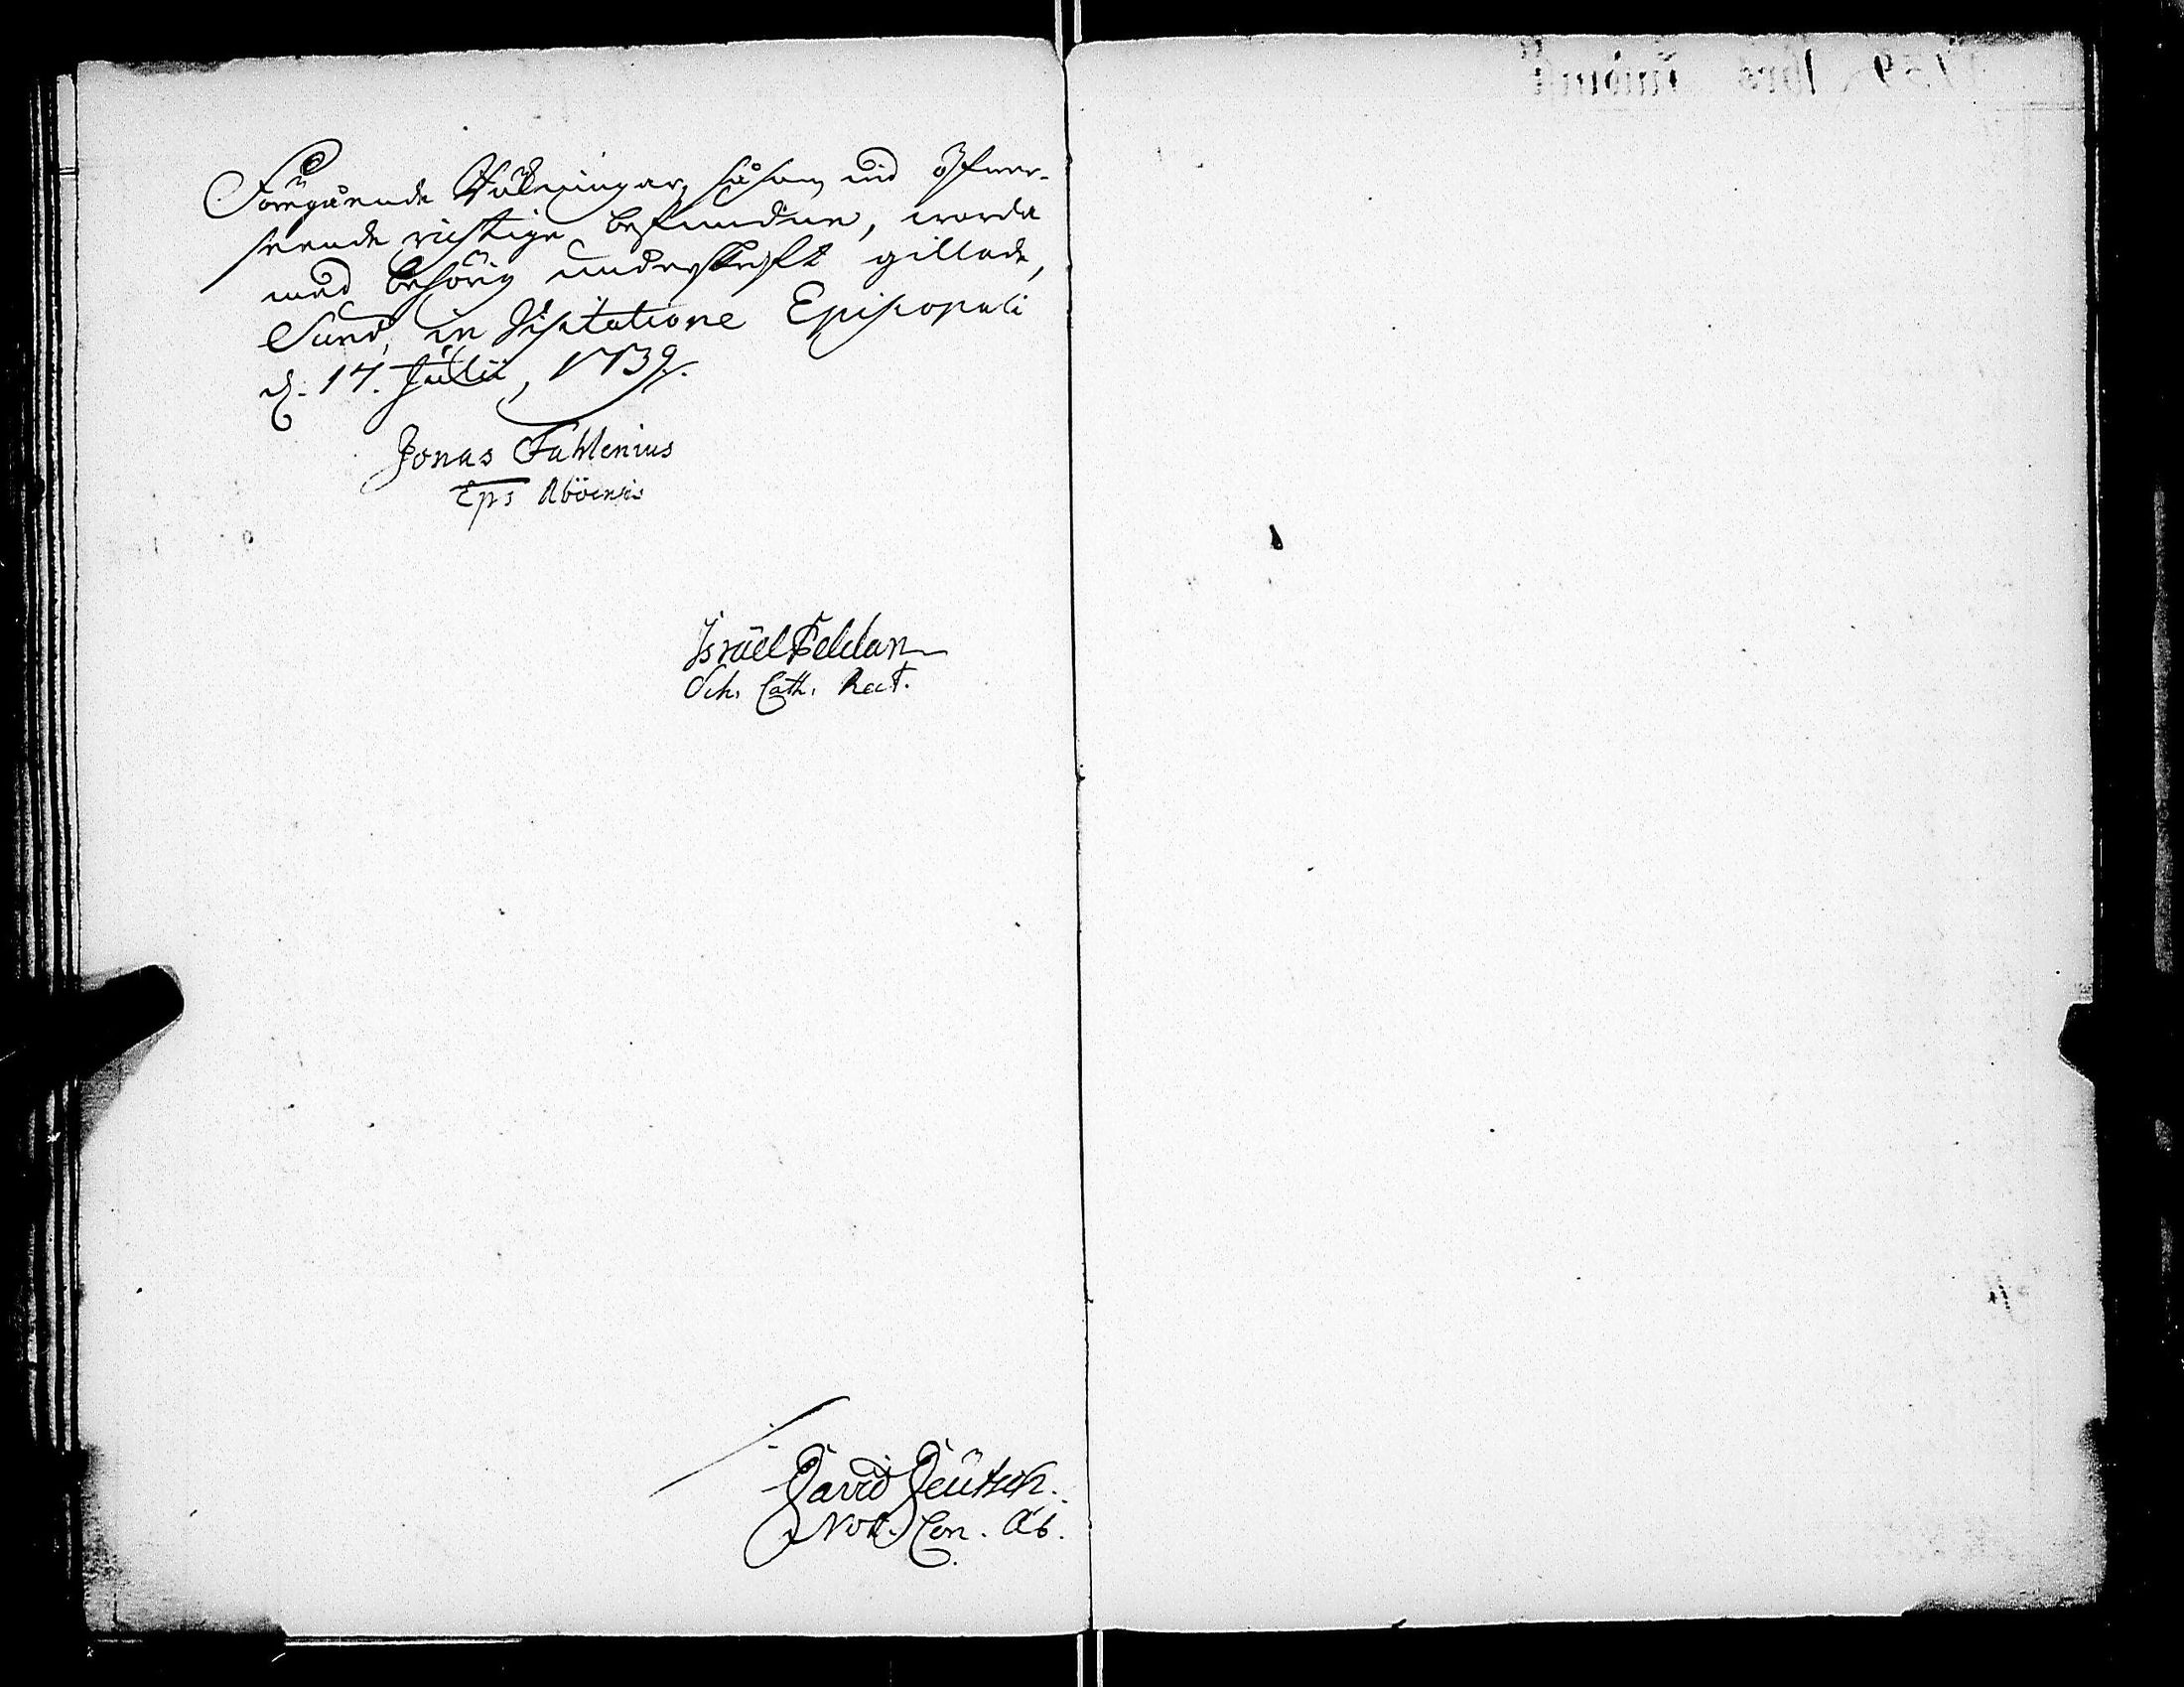 Föregående Räkningar, såsom wid öfwer-
seende richtige befundne, worde
med behörig underskrift gillade,
Sund, in Visitatione Episcopali
d. 17. Julii, 1739.
Jonas Fahlenius
Eps Aböensis
Israel Peldan
Sch. Cath. Rect.
David Deutsch.
Not. Con. Ab.